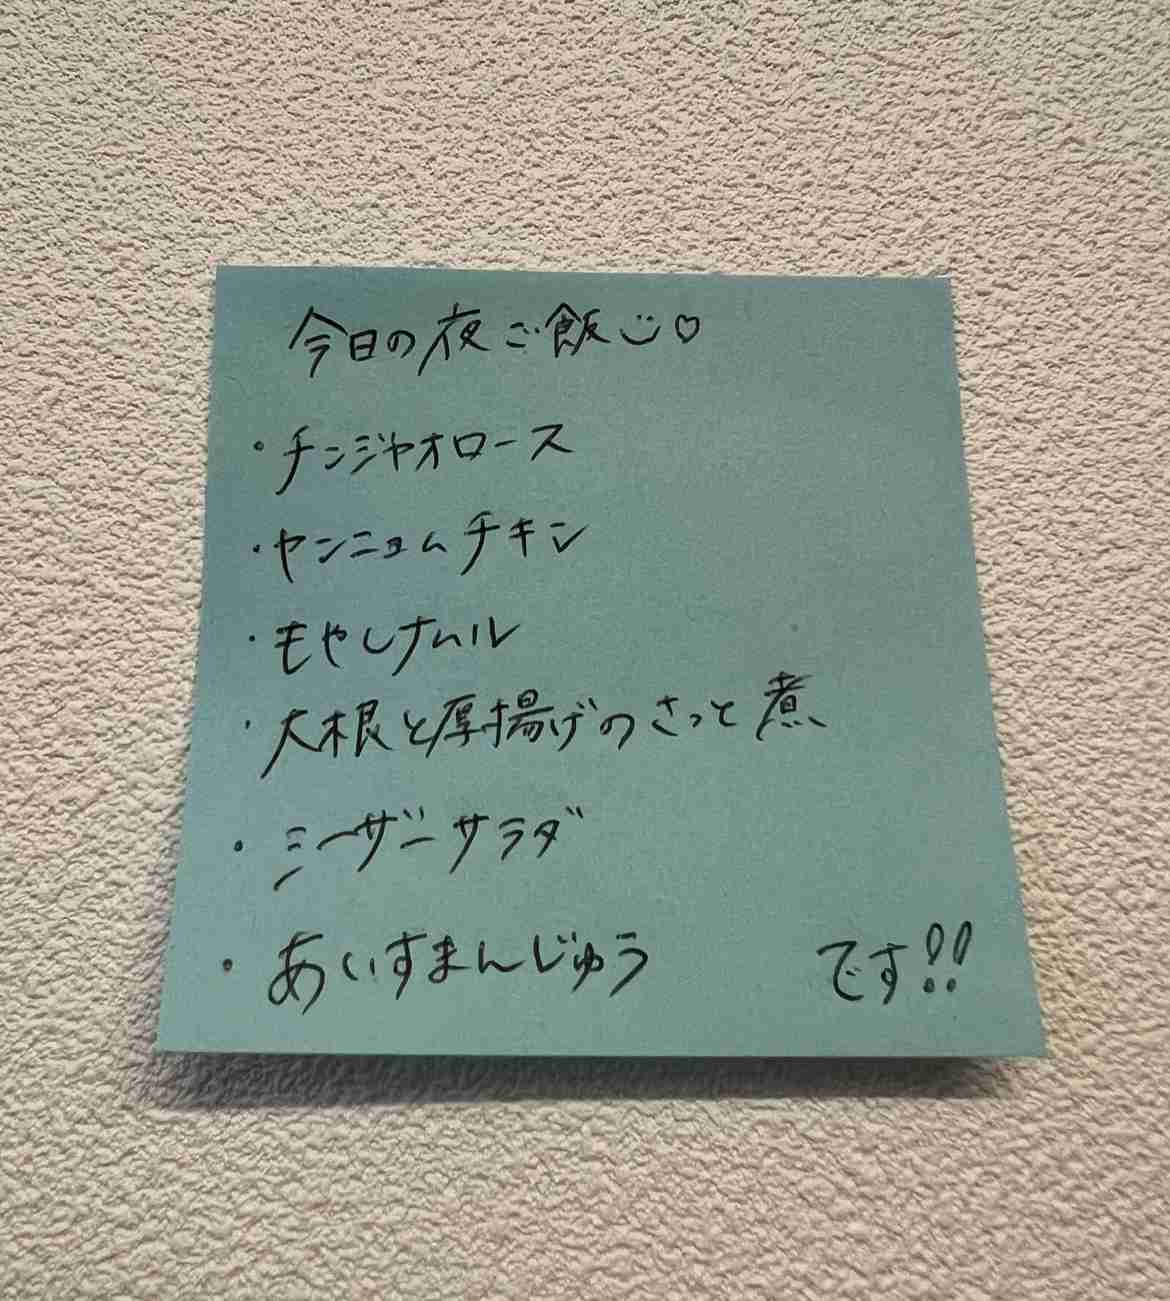 今日の夜ご飯 ツ♡
・チンジャオロース
・ヤンニョムチキン
・もやしナムル
・大根と厚揚げのさっと煮
・シーザーサラダ
・あいすまんじゅう です!!